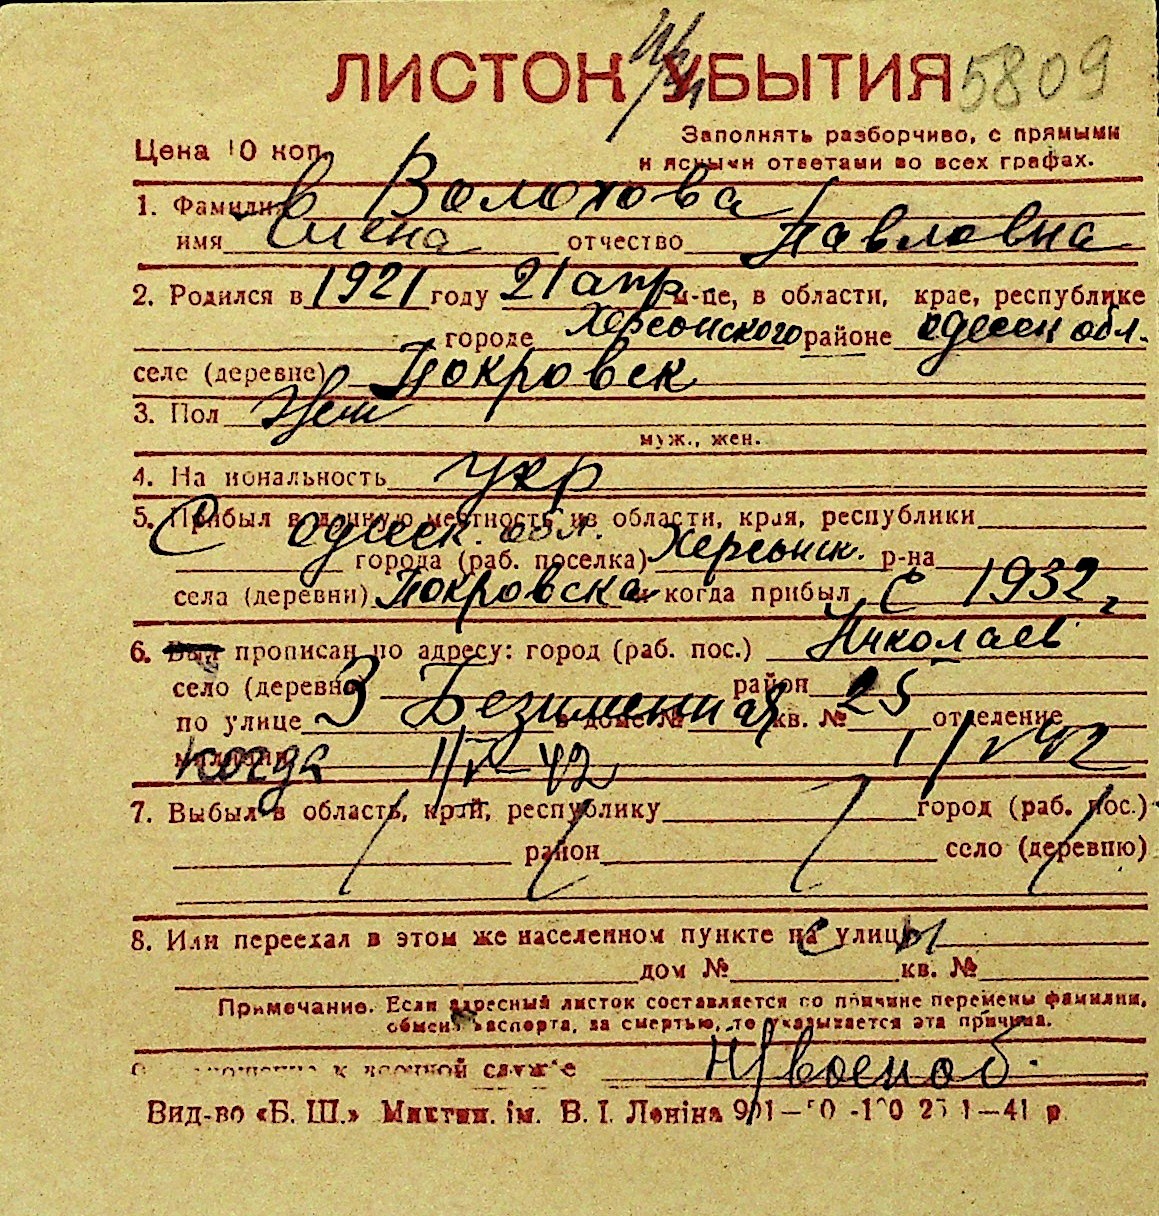 ЛИСТОК УБЫТИЯ 5809
Цена 10 коп.
Заполнять разборчиво, с прямыми
и ясными ответами во всех графах.
1. Фамилия Волохова
имя Елена отчество Павловна
2. Родился в 1921 году 21 апр м-це, в области, крае, республике
городе Херсонского районе одесск обл.
селе (деревне) Покровск
3. Пол Жен
муж., жен.
4. На иональность укр
5. Прибыл в данную местность из области, края, республики
С одесск. обл.
города (раб. поселка) Херсонск. р-на
села (деревни) Покровска и когда прибыл с 1932
6. Был прописан по адресу: город (раб. пос.) Николаев
село (деревня) район
по улице 3 Безименная в доме № кв. № 25 отделение
милиции когда
7. Выбыл в область, край, республику город (раб. пос.)
район село (деревню)
8. Или переехал в этом же населенном пункте на улицу
дом № кв. №
Примечание. Если адресный листок составляется по причине перемены фамилии,
обмена паспорта, за смертью, то указывается эта причина.
к военной службе Н/военоб.
Вид-во «Б. Ш.» Миктип. ім. В. І. Леніна